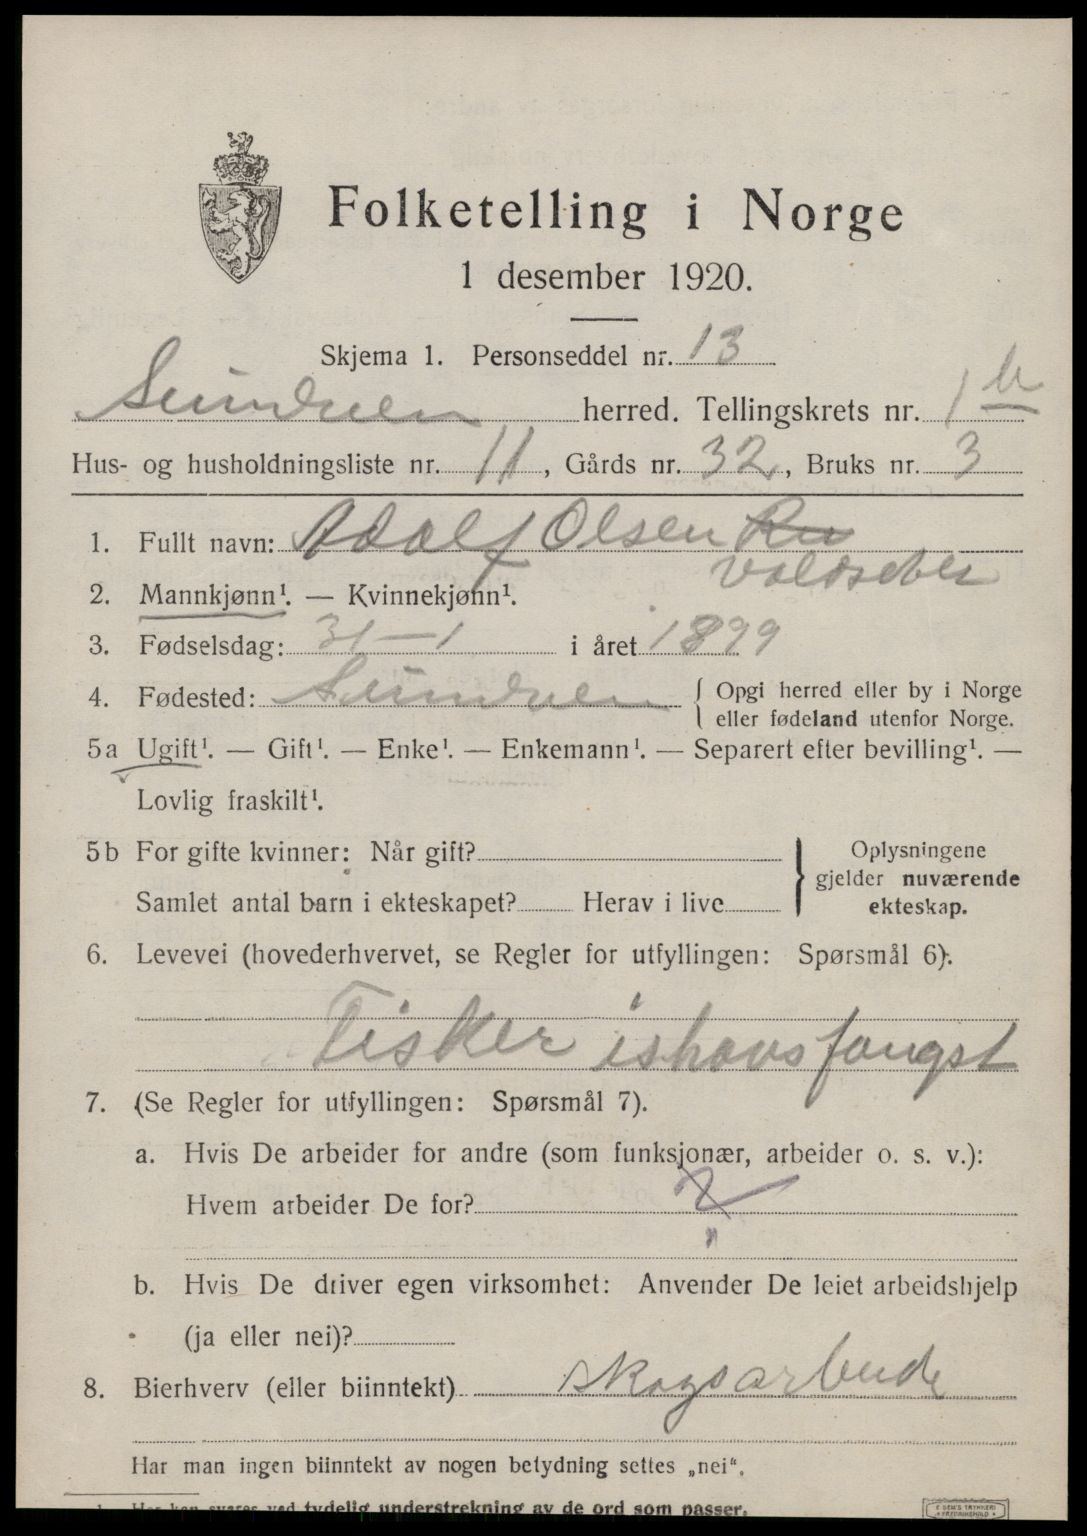 Folketelling i Norge
1 desember 1920.
Skjema 1. Personseddel nr. 13
Sunndalen herred. Tellingskrets nr. 1 b
Hus- og husholdningsliste nr. 11, Gårds nr. 32, Bruks nr. 3
1. Fullt navn: Adolf Olsen
2. Mannkjønn¹. — Kvinnekjønn¹.
3. Fødselsdag: 31-1 i året 1899
4. Fødested: Sunndalen { Opgi herred eller by i Norge
eller fødeland utenfor Norge.
5a Ugift¹. — Gift¹. — Enke¹. — Enkemann¹. — Separert efter bevilling¹. —
Lovlig fraskilt¹.
5b For gifte kvinner: Når gift?
Samlet antal barn i ekteskapet? Herav i live
Oplysningene
gjelder nuværende
ekteskap.
6. Levevei (hovederhvervet, se Regler for utfyllingen: Spørsmål 6).
Fisker ishavsfangst
7. (Se Regler for utfyllingen: Spørsmål 7).
a. Hvis De arbeider for andre (som funksjonær, arbeider o. s. v.):
Hvem arbeider De for?
b. Hvis De driver egen virksomhet: Anvender De leiet arbeidshjelp
(ja eller nei)?
8. Bierhverv (eller biinntekt) skogsarbeide
Har man ingen biinntekt av nogen betydning settes „nei“.
1. Her kan svares ved tydelig understrekning av de ord som passer.